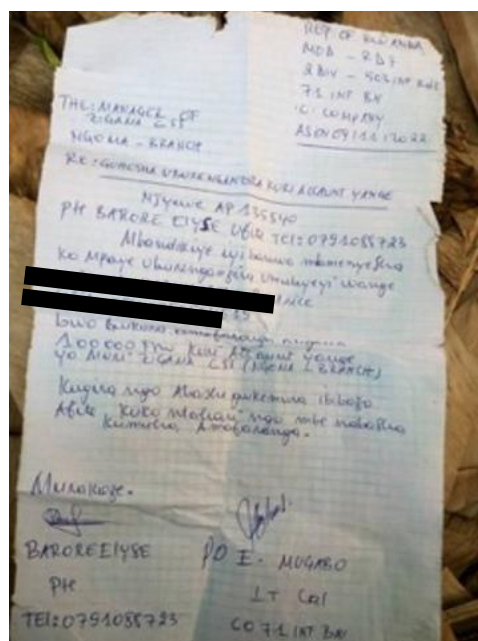 REP OF RWANDA
MOD - RDF
2 DIV - 503 INF BDE
71 INF BN
'C' COMPANY
ASON 09/11/2022
THE: MANAGER OF
ZIGAMA CSS
NGOMA - BRANCH
RE: GUHESHA UBURENGANZIRA KURI ACCOUNT YANGE
Njyewe AP 135840
PTE BARORE ELYSE UBU TEL: 0791088723
Mbandikiye iyi baruwa mbamenyesha
ko Mpaye Uburenganzira Umubyeyi wange
bwo Gukura amafaranga angana
100000 frw Kuri Account yange
yo MURI ZIGAMA CSS (NGOMA - BRANCH)
Kugira ngo Abashe gukemura ibibazo
Afite Koko ngo mbe nabasha
Kumuha Amafaranga.
Murakoze.
BARORE ELYSE
Pte
TEL: 0791088723
PO E. MUGABO
LT Col
CO 71 INF BN